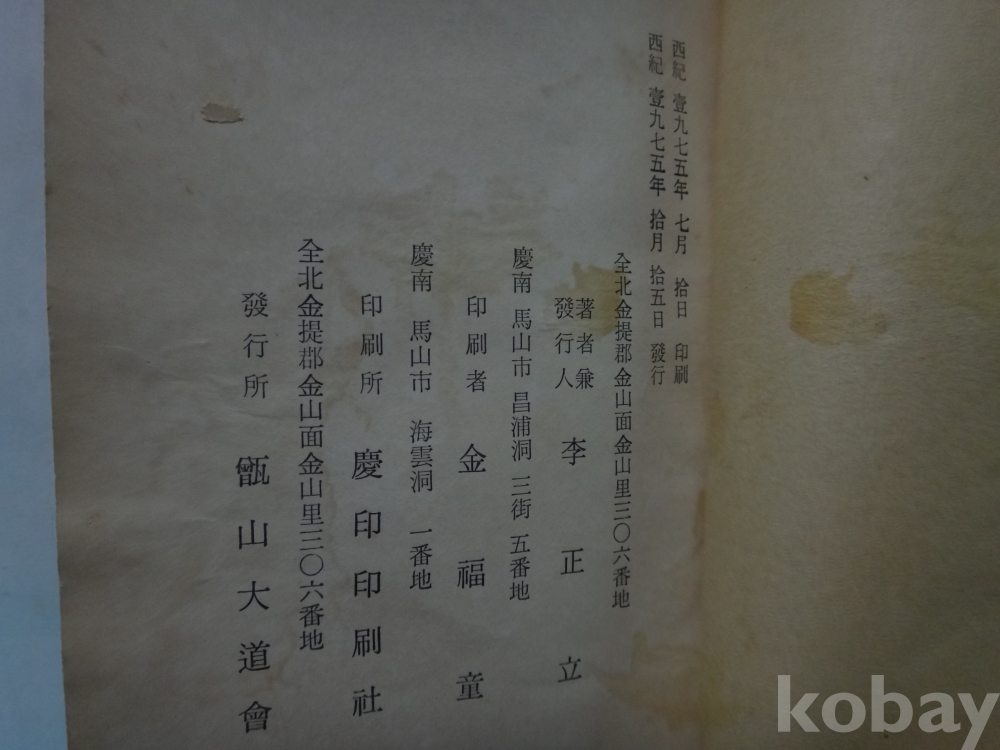 西紀 壹九七五年 七月 拾日 印刷
西紀 壹九七五年 拾月 拾五日 發行
全北金提郡金山面金山里三〇六番地
著者兼
發行人 李正立
慶南 馬山市 昌浦洞 三街 五番地
印刷者 金福童
慶南 馬山市 海雲洞 一番地
印刷所 慶印印刷社
全北金提郡金山面金山里三〇六番地
發行所 甑山大道會
kobay